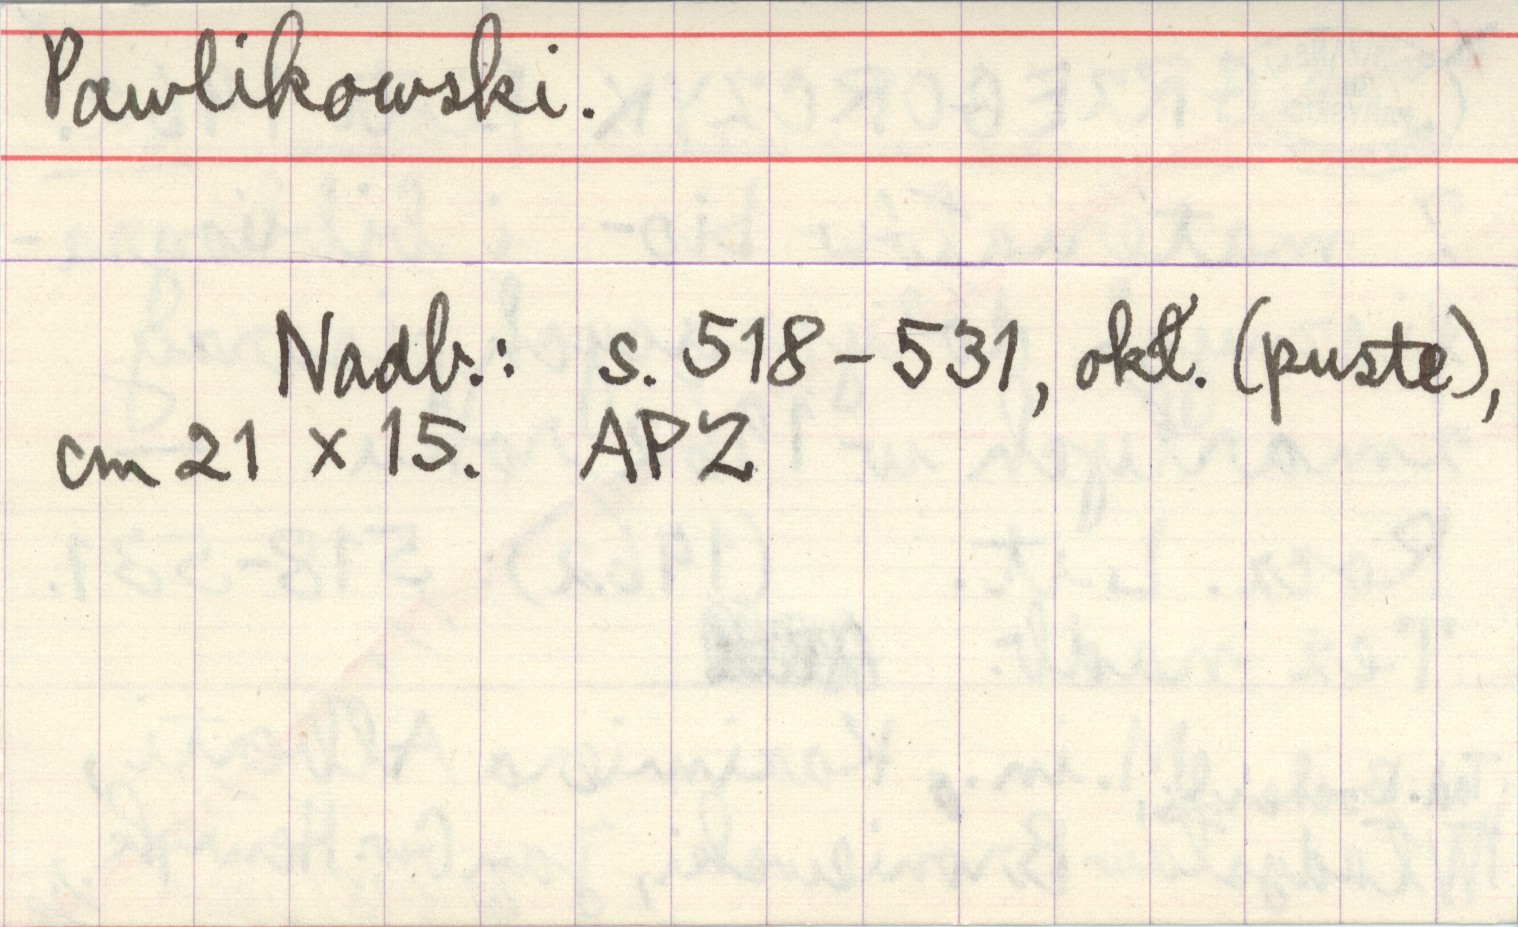 Pawlikowski.
Nadb.: s. 518-531, okł. (puste),
cm 21 x 15. APZ